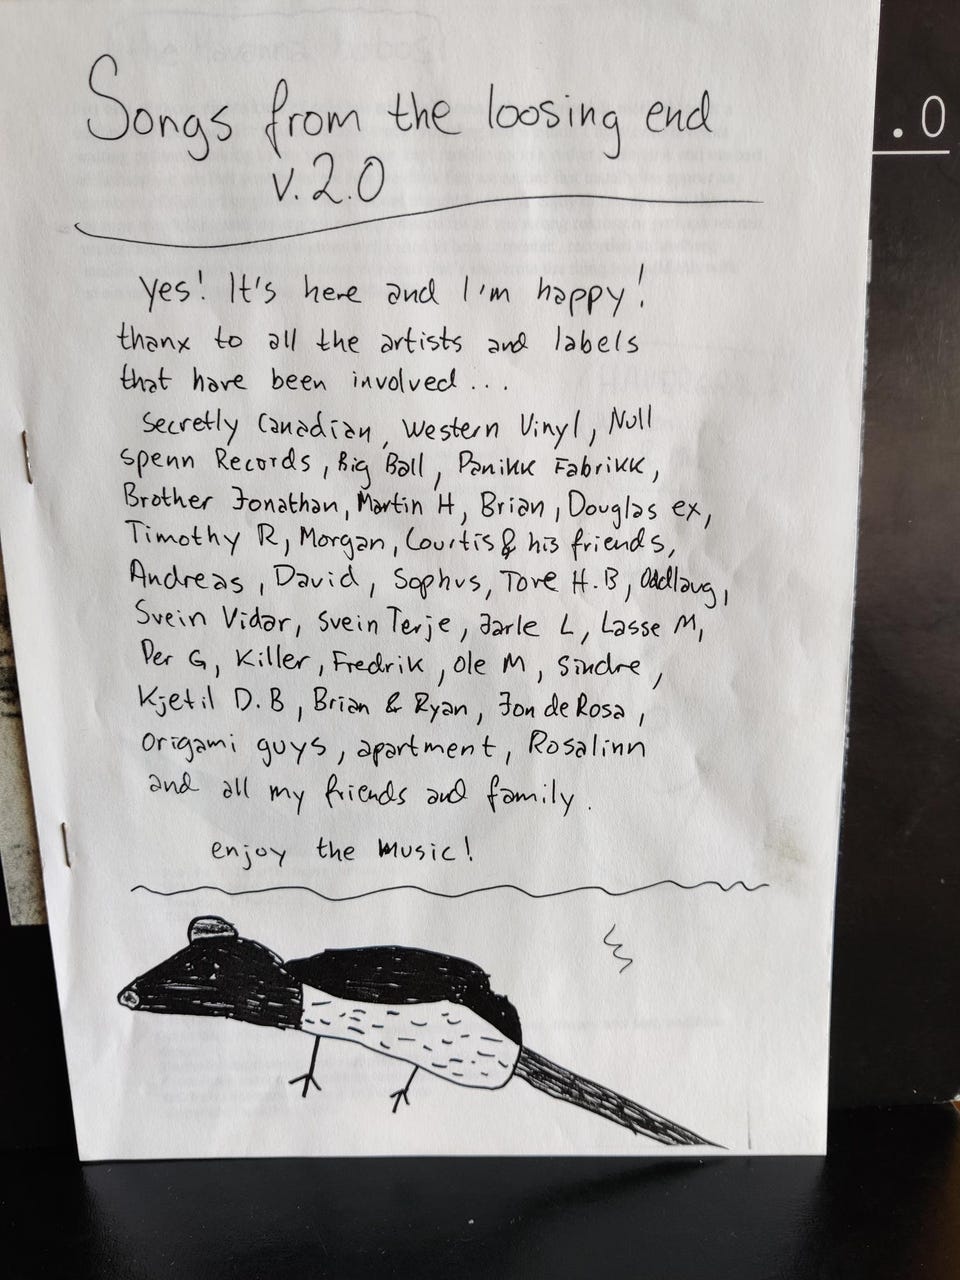 Songs from the loosing end
v.2.0
.0
Yes! It's here and I'm happy!
thanx to all the artists and labels
that have been involved...
Secretly Canadian, Western Vinyl, Null
spenn Records, Big Ball, Panikk Fabrikk,
Brother Jonathan, Martin H, Brian, Douglas ex,
Timothy R, Morgan, Courtis & his friends,
Andreas, David, Sophus, Tore H.B, Oddlaug,
Svein Vidar, Svein Terje, Jarle L, Lasse M,
Per G, Killer, Fredrik, Ole M, Sindre,
Kjetil D.B, Brian & Ryan, Jon de Rosa,
Origami guys, apartment, Rosalinn
and all my friends and family.
enjoy the Music!